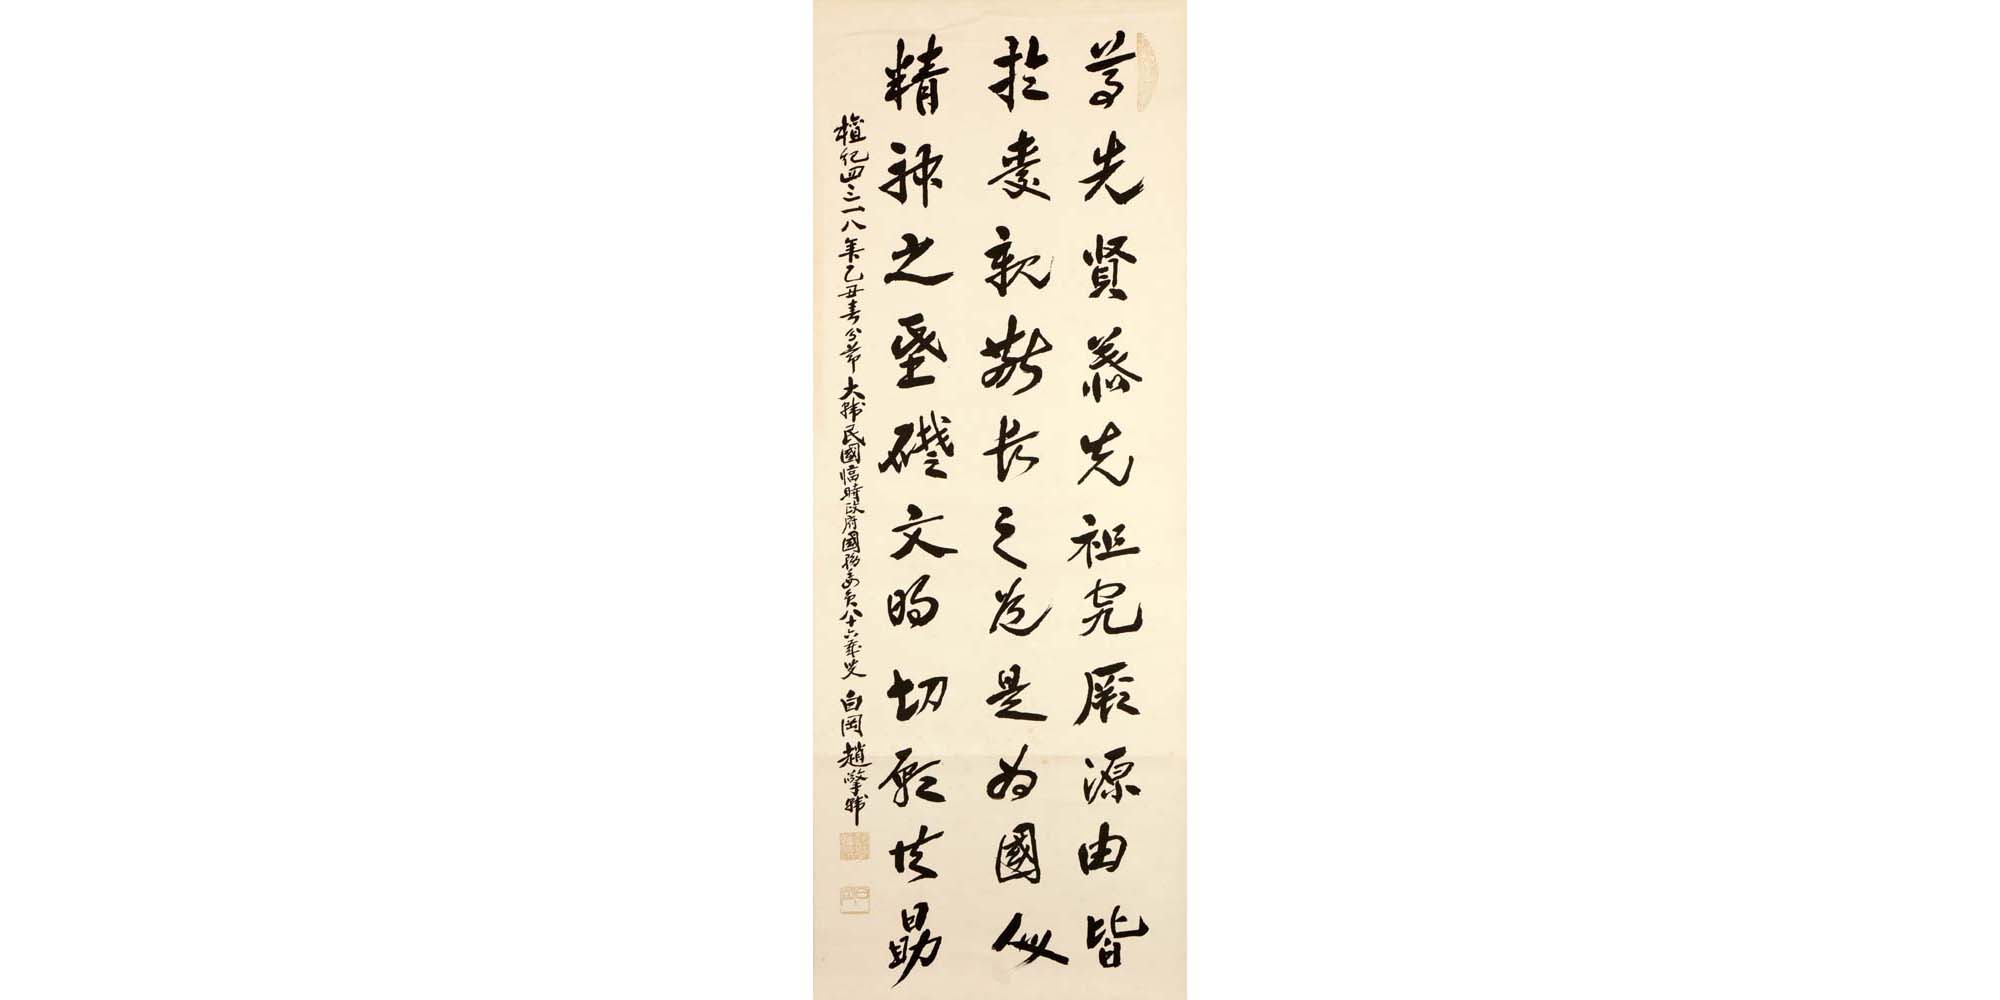 尊先賢慕先祖究厥源由皆
於愛親敬長之道是為國
精神之基礎文明切願共勗
檀紀四三一八年乙丑春分節大韓民國臨時政府國務委員八十六歲叟 白岡 趙擎韓